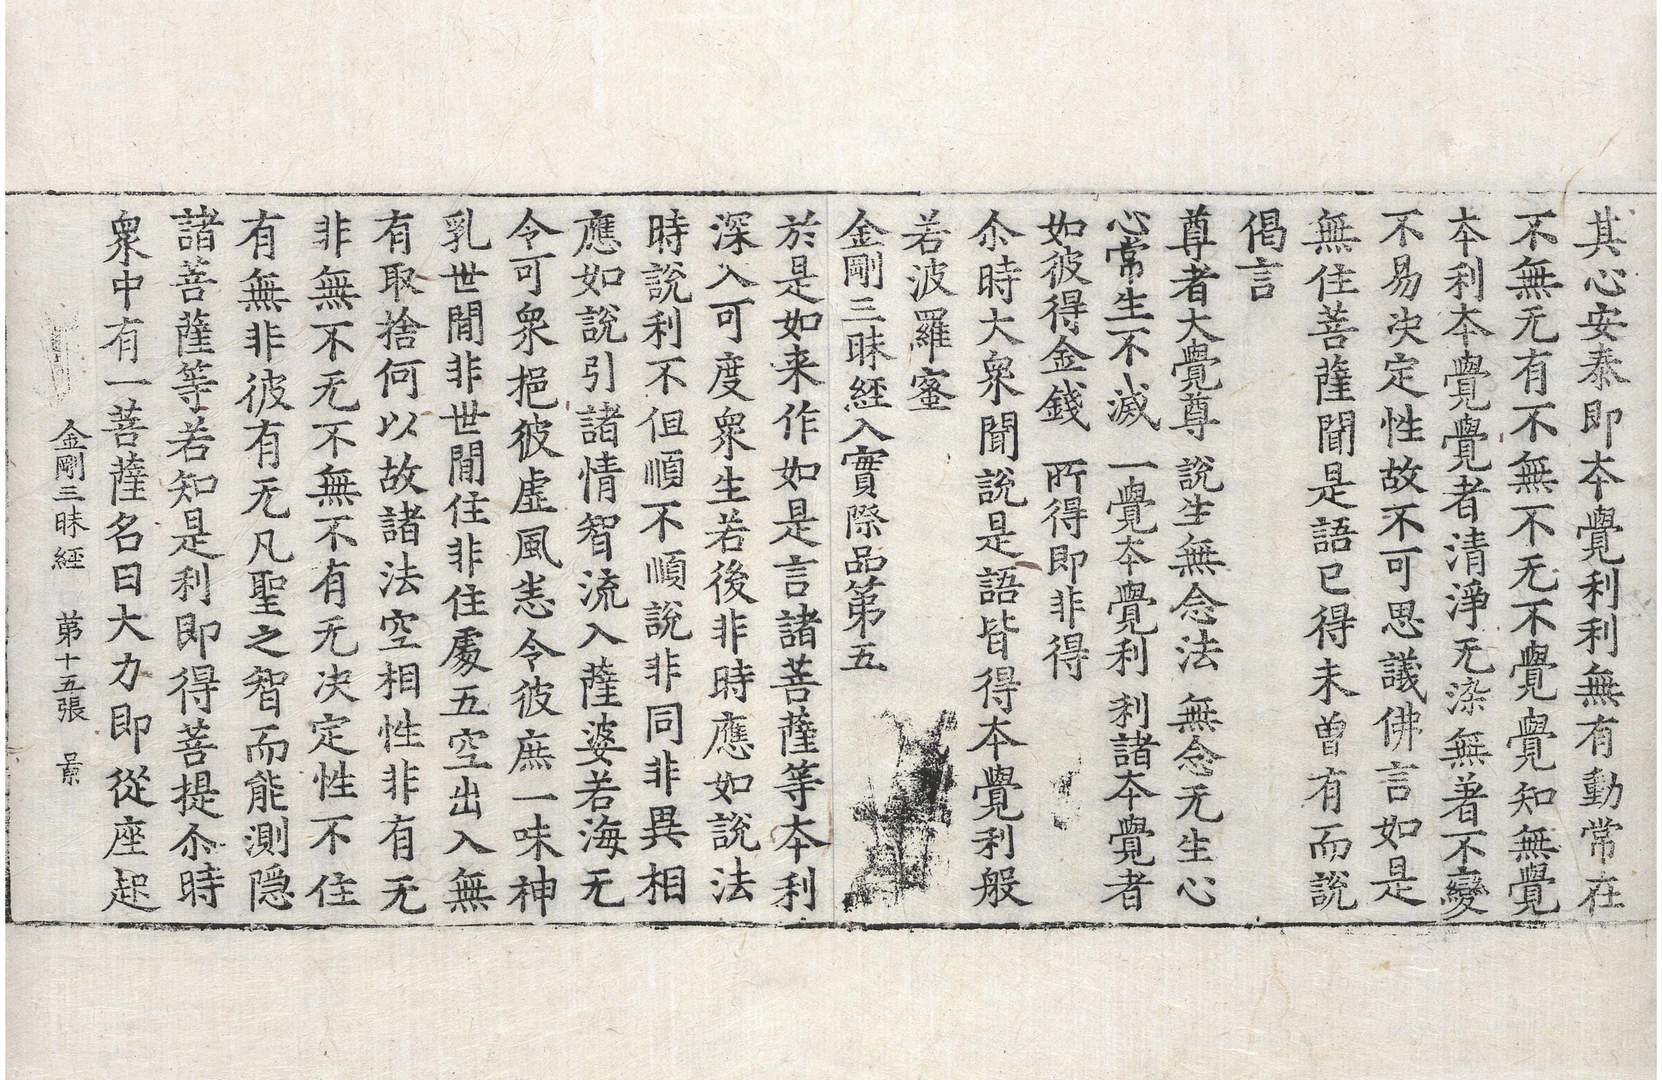 其心安泰即本覺利利無有動常在
不無无有不無不无不覺覺知無覺
本利本覺覺者清淨无染無著不變
不易决定性故不可思議佛言如是
無住菩薩聞是語已得未曾有而說
偈言
尊者大覺尊 說生無念法 無念无生心
心常生不滅 一覺本覺利 利諸本覺者
如彼得金錢 所得即非得
尒時大衆聞說是語皆得本覺利般
若波羅蜜
金剛三昧經入實際品第五
於是如来作如是言諸菩薩等本利
深入可度衆生若後非時應如說法
時說利不但順不順說非同非異相
應如說引諸情智流入薩婆若海无
令可衆挹彼虛風悉令彼庶一味神
乳世間非世間住非住處五空出入無
有取捨何以故諸法空相性非有无
非無不无不無不有无决定性不住
有無非彼有无凡聖之智而能測隱
諸菩薩等若知是利即得菩提尒時
衆中有一菩薩名曰大力即從座起
金剛三昧經 第十五張 景